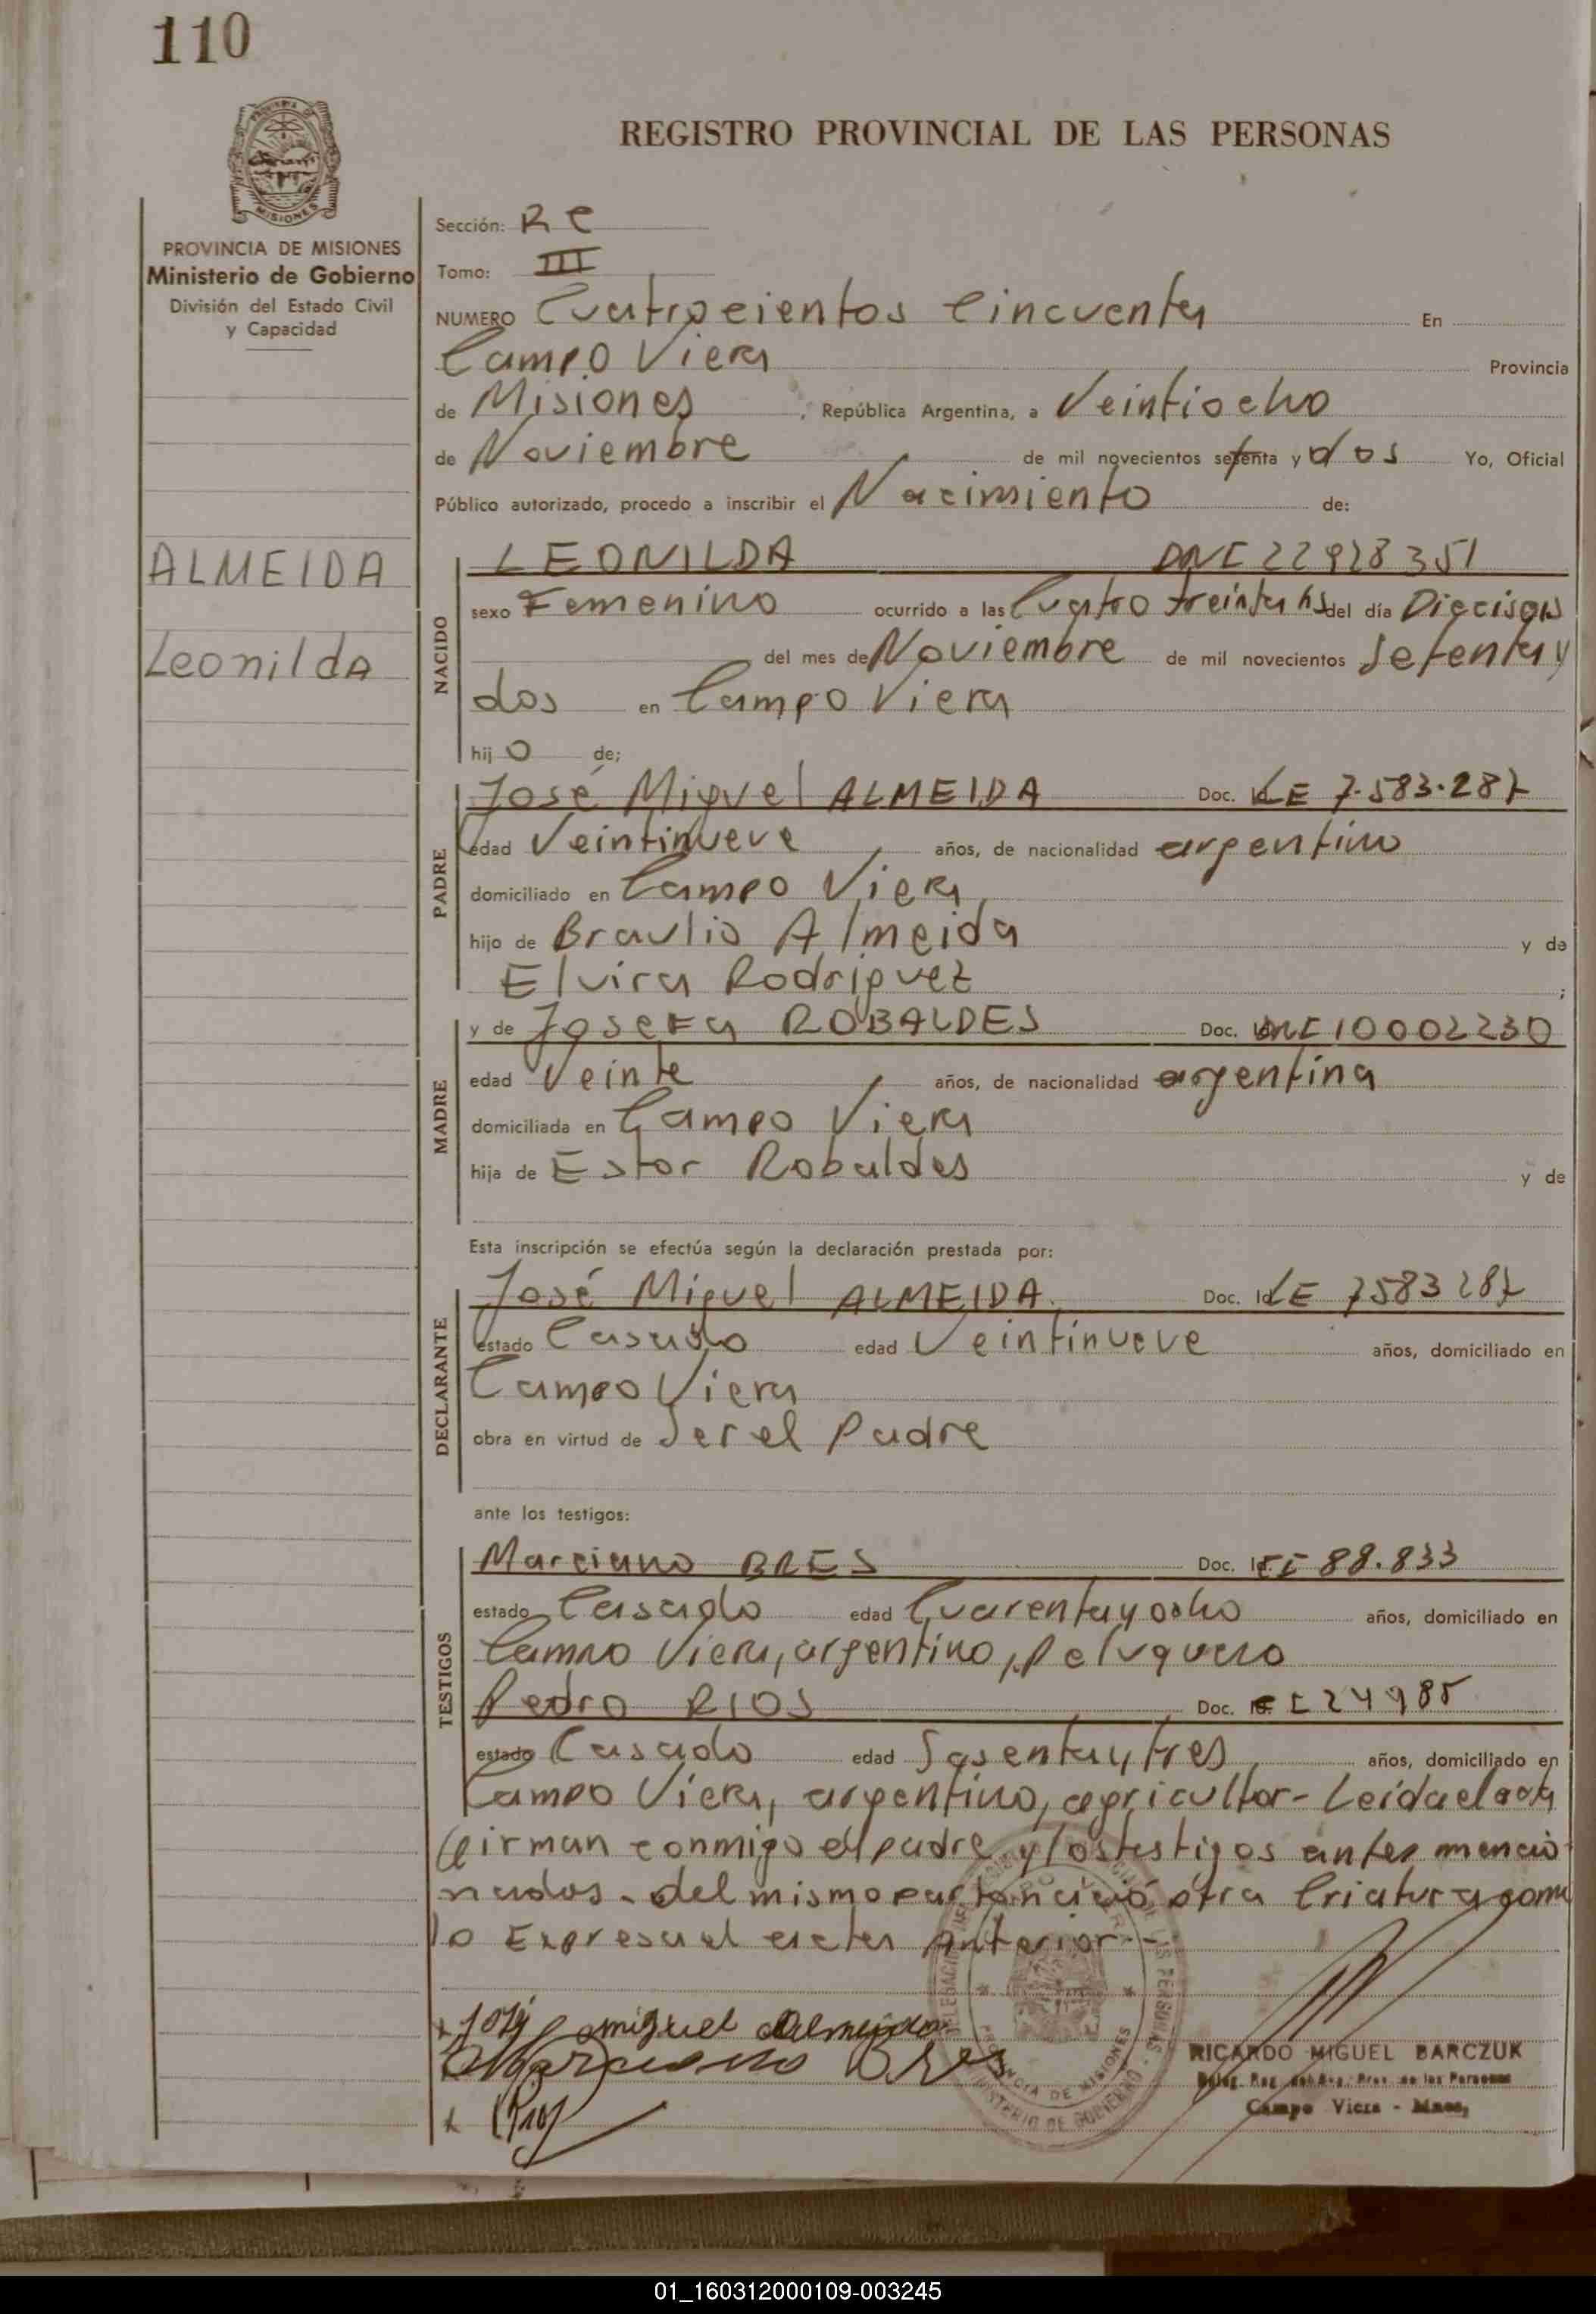 110
REGISTRO PROVINCIAL DE LAS PERSONAS
PROVINCIA DE MISIONES
Ministerio de Gobierno
División del Estado Civil
y Capacidad
ALMEIDA
Leonilda
Sección: Re
Tomo: III
NUMERO Cuatrocientos Cincuenta En
Campo Viera Provincia
de Misiones, República Argentina, a Veintiocho
de Noviembre de mil novecientos setenta y dos Yo, Oficial
Público autorizado, procedo a inscribir el Nacimiento de:
NACIDO
LEONILDA DNI 22928351
sexo Femenino ocurrido a las Cuatro treinta hs del día Dieciseis
del mes de Noviembre de mil novecientos Setenta y
dos en Campo Viera
hijo de;
PADRE
José Miguel ALMEIDA Doc. LE 7.583.287
edad Veintinueve años, de nacionalidad argentino
domiciliado en Campo Viera,
hijo de Braulio Almeida y de
Elvira Rodriguez ;
MADRE
y de Josefa ROBALDES Doc. DNI 10002230
edad Veinte años, de nacionalidad argentina
domiciliada en Campo Viera
hija de Estor Robaldes y de
Esta inscripción se efectúa según la declaración prestada por:
DECLARANTE
José Miguel ALMEIDA. Doc. LE 7583287
estado Casado edad Veintinueve años, domiciliado en
Campo Viera
obra en virtud de Ser el Padre
ante los testigos:
TESTIGOS
Marciano BRES Doc. CI 88.833
estado Casado edad Cuarenta y ocho años, domiciliado en
Campo Viera, argentino, Peluquero
Pedro RIOS Doc. CI 24985
estado Casado edad Sesenta y tres, años, domiciliado en
Campo Viera, argentino, agricultor - Leida el acta
firman conmigo el padre y los testigos antes mencio
nados. del mismo parto nació otra Criatura como
lo Expresa el acta Anterior.-
José miguel Almeida
Marciano Bres
PRios
RICARDO MIGUEL BARCZUK
Campo Viera - Mnes,
PROVINCIA DE MISIONES
MINISTERIO DE GOBIERNO
01_160312000109-003245